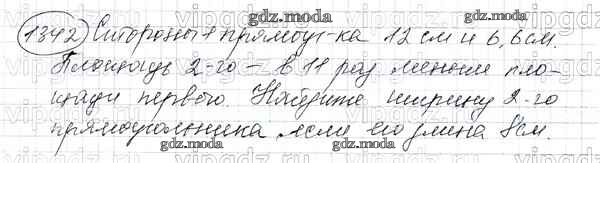 1342) Стороны 1 прямоуг-ка 12 см и 6,6 см.
Площадь 2-го – в 11 раз меньше пло-
щади первого. Найдите ширину 2-го
прямоугольника если его длина 8см.
gdz.moda